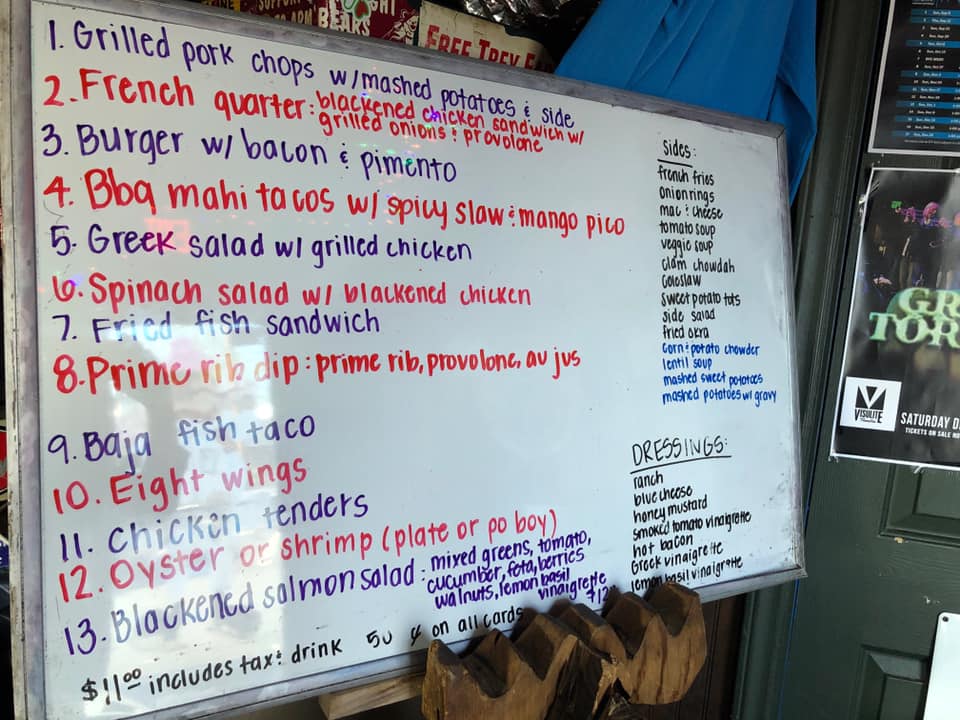 BEAKS
FREE TREY E
1. Grilled pork chops w/mashed potatoes & side
2. French quarter: blackened chicken sandwich w/
grilled onions & provolone
3. Burger w/ bacon & pimento
4. Bbq mahi tacos w/ spicy slaw & mango pico
5. Greek salad w/ grilled chicken
6. Spinach salad w/ blackened chicken
7. Fried fish sandwich
8. Prime rib dip: prime rib, provolone, au jus
9. Baja fish taco
10. Eight wings
11. Chicken tenders
12. Oyster or shrimp (plate or po boy)
13. Blackened salmon salad: mixed greens, tomato,
cucumber, feta, berries
walnuts, lemon basil
vinaigrette
$12
$11.00 includes tax & drink 50 ¢ on all cards
Sides:
french fries
onion rings
mac & cheese
tomato soup
veggie soup
clam chowdah
Coleslaw
sweet potato tots
side salad
fried okra
corn & potato chowder
lentil soup
mashed sweet potatoes
mashed potatoes w/ gravy
DRESSINGS:
ranch
blue cheese
honey mustard
smoked tomato vinaigrette
hot bacon
Greek vinaigrette
lemon basil vinaigrette
GR
TOR
VISULITE
SATURDAY D
TICKETS ON SALE NO